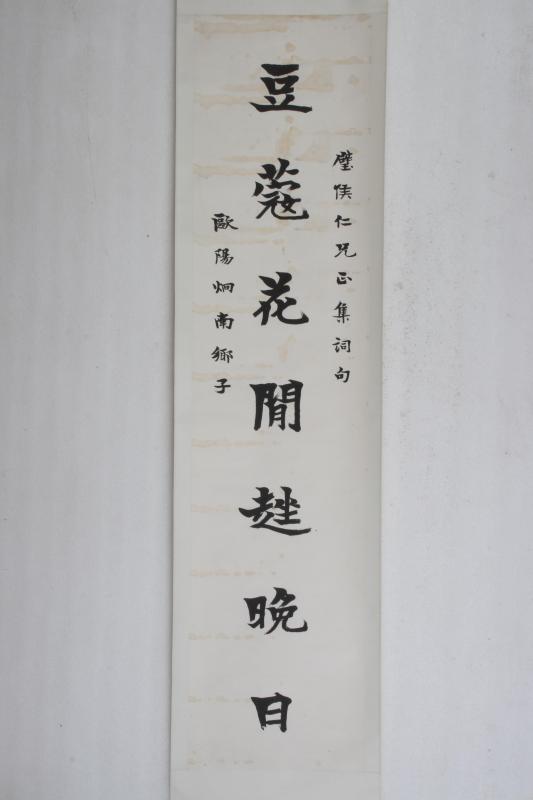 璧侯仁兄正集詞句
豆蔻花閒趖晚日
歐陽炯南鄉子